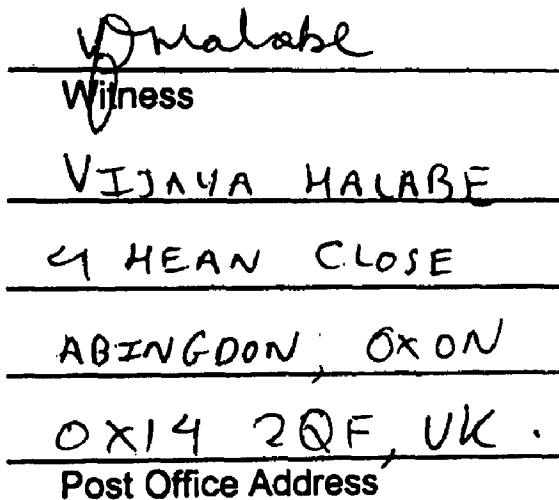 Witness
VIJAYA HALABE
4 HEAN CLOSE
ABINGDON, OXON
OX14 2QF, UK.
Post Office Address